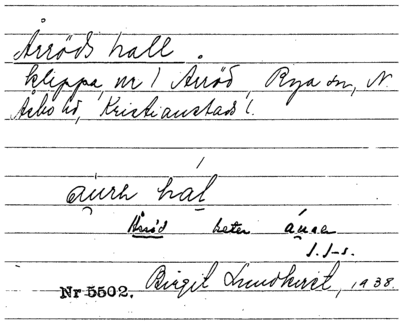 Årröds hall
klippa, nr 1 Årröd, Rya sn, N.
Åsbo hd, Kristianstads l.
áurn hal
Årröd heter áurn
J. J-s.
Nr 5502. Birgit Lundkvist, 1938.